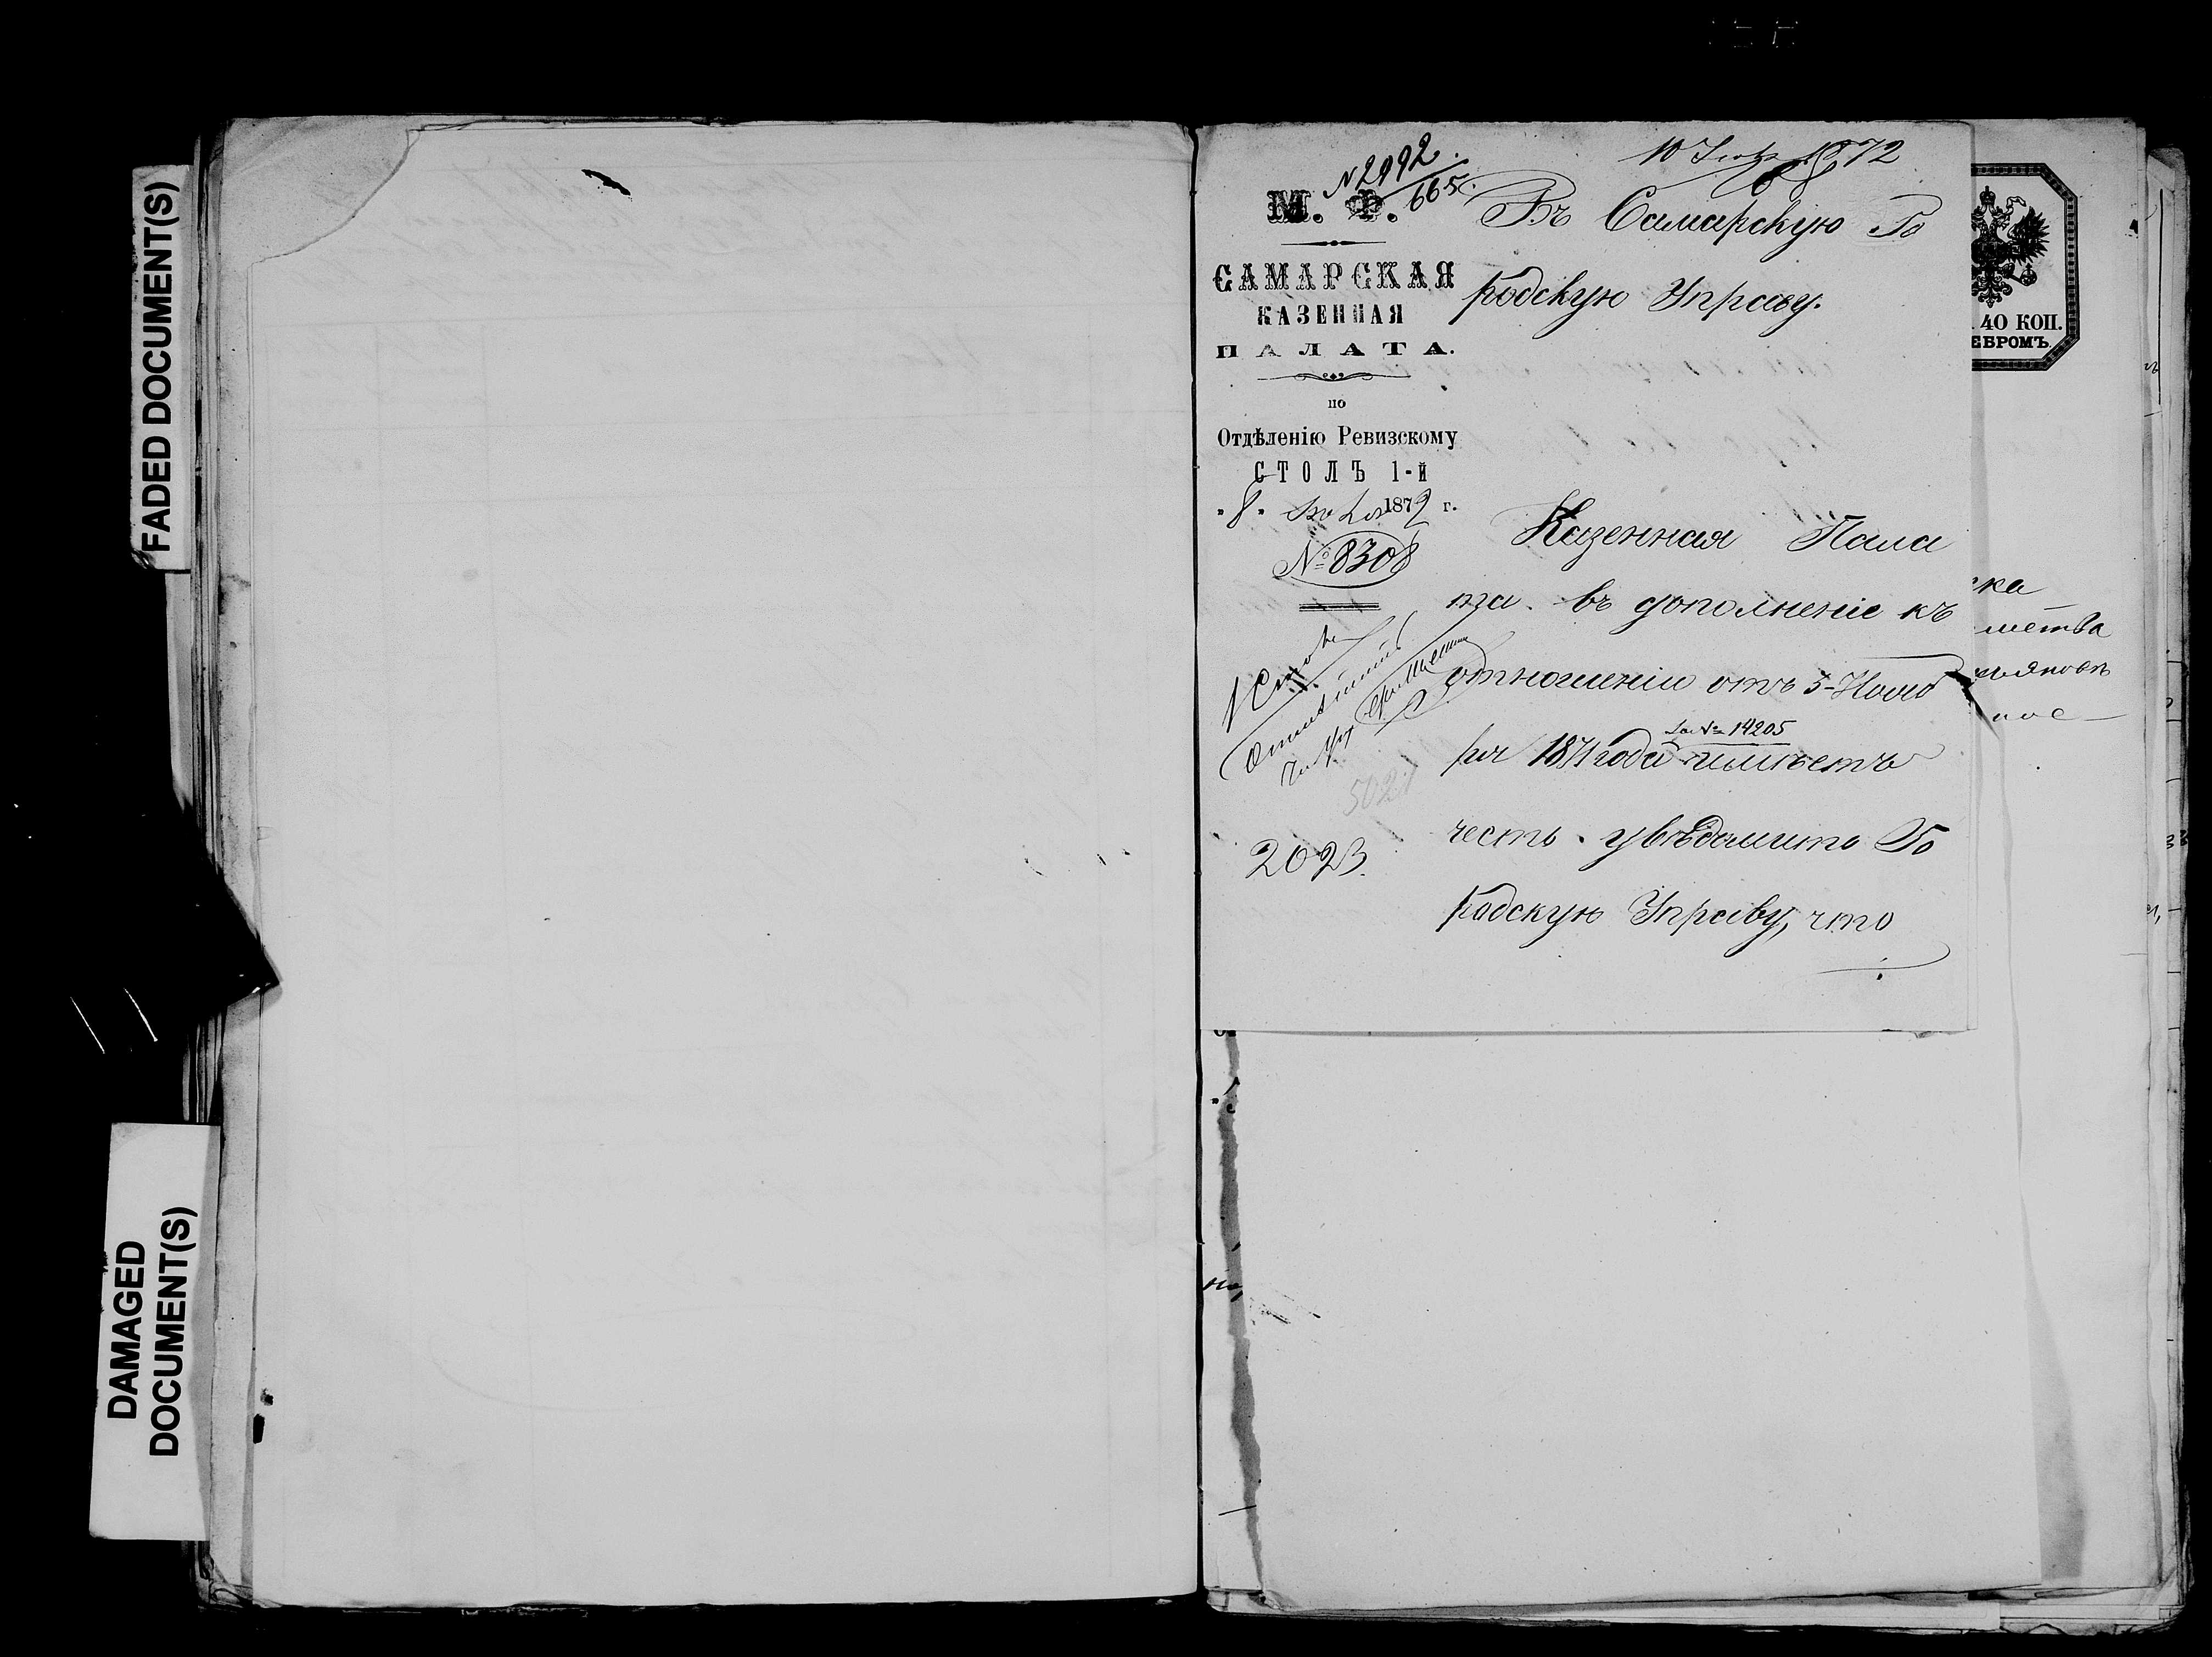 FADED DOCUMENT(S)
DAMAGED
DOCUMENT(S)
10 1872
68
N 2992.
665.
М. Ф.
САМАРСКАЯ
КАЗЕННАЯ
ПАЛАТА.
по
Отдѣленію Ревизскому
СТОЛЪ 1-й
„8„ 1872 г.
№ 8308
5021
2023.
Въ Самарскую Го
родскую Управу.
Казенная Пала
та въ дополненіе къ
отношенію отъ 5 Нояб
за № 14205
ря 1871 года имѣетъ
честь увѣдомить Го
родскую Управу, что
40 КОП.
ЕБРОМЪ.